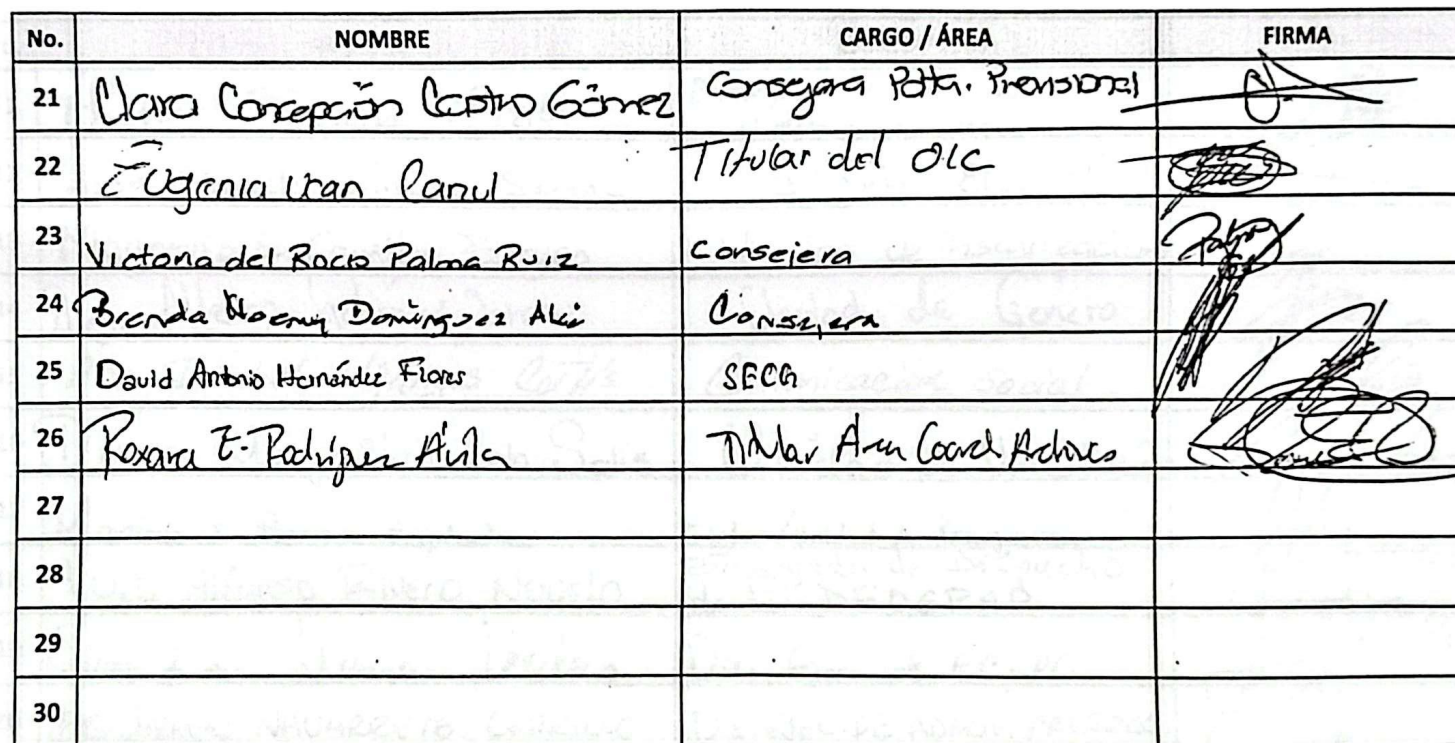 No. NOMBRE CARGO / ÁREA FIRMA
21 Clara Concepción Castro Gómez Consejera Pdta. Provisional
22 Eugenia Ucan Canul Titular del OIC
23 Victoria del Rocio Palma Ruiz Consejera
24 Brenda Noemy Domínguez Aké Consejera
25 David Antonio Hernández Flores SECG
26 Roxana E. Rodríguez Ávila Titular Area Coord. Archivos
27
28
29
30